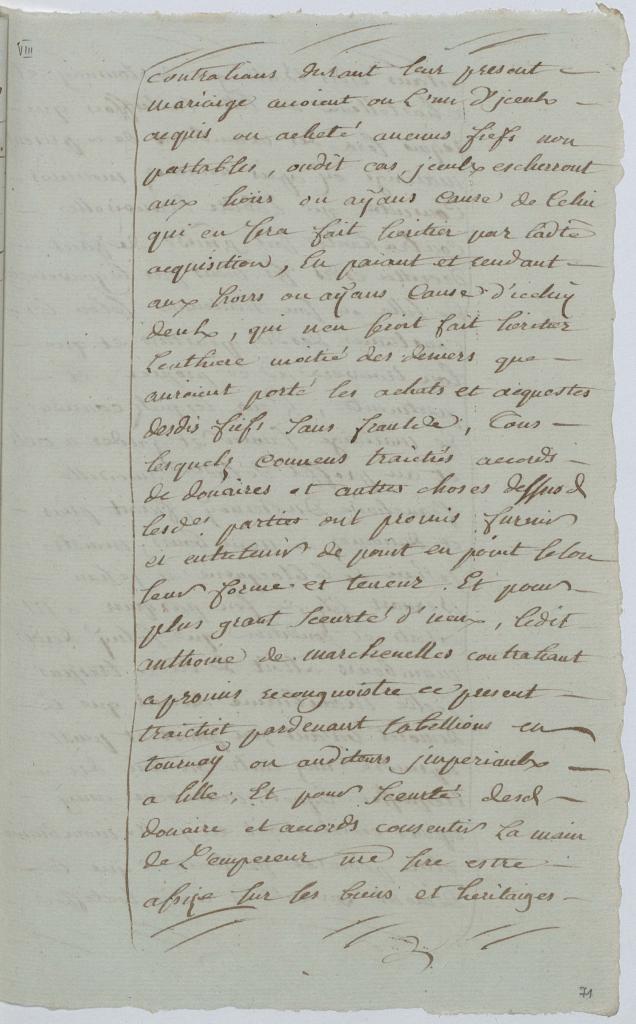 VIII
contrahans durant leur present
mariaige avoient ou L'un d'jceulx
acquis ou acheté aucuns fiefs non
partables, oudit cas jceulx escherront
aux hoirs ou aÿans cause de Celui
qui en sera fait heritier par ladte
acquisition, En paiant et rendant
aux hoirs ou aÿans Cause d'icelluÿ
deulx, qui n'en seroit fait heritier
L'enthiere moitié des deniers que
auroient porté les achats et acquestes
desdis fiefs sans fraulde, Tous
lesquels convens traictiés accords
de douaires et autres choses dessusd
lesdes parties ont promis furnir
et entretenir de point en point selon
leur forme et teneur. Et pour
plus grant seeurté d'iceux, ledit
anthoine de marchenelles contrahant
a promis recongnoistre ce present
traictiet pardevant tabellions en
tournaÿ ou auditeurs jmperiaulx
a lille, Et pour seeurté desd
douaire et accords consentir La main
de L'empereur nre sire estre
assize sur les biens et heritaiges
71